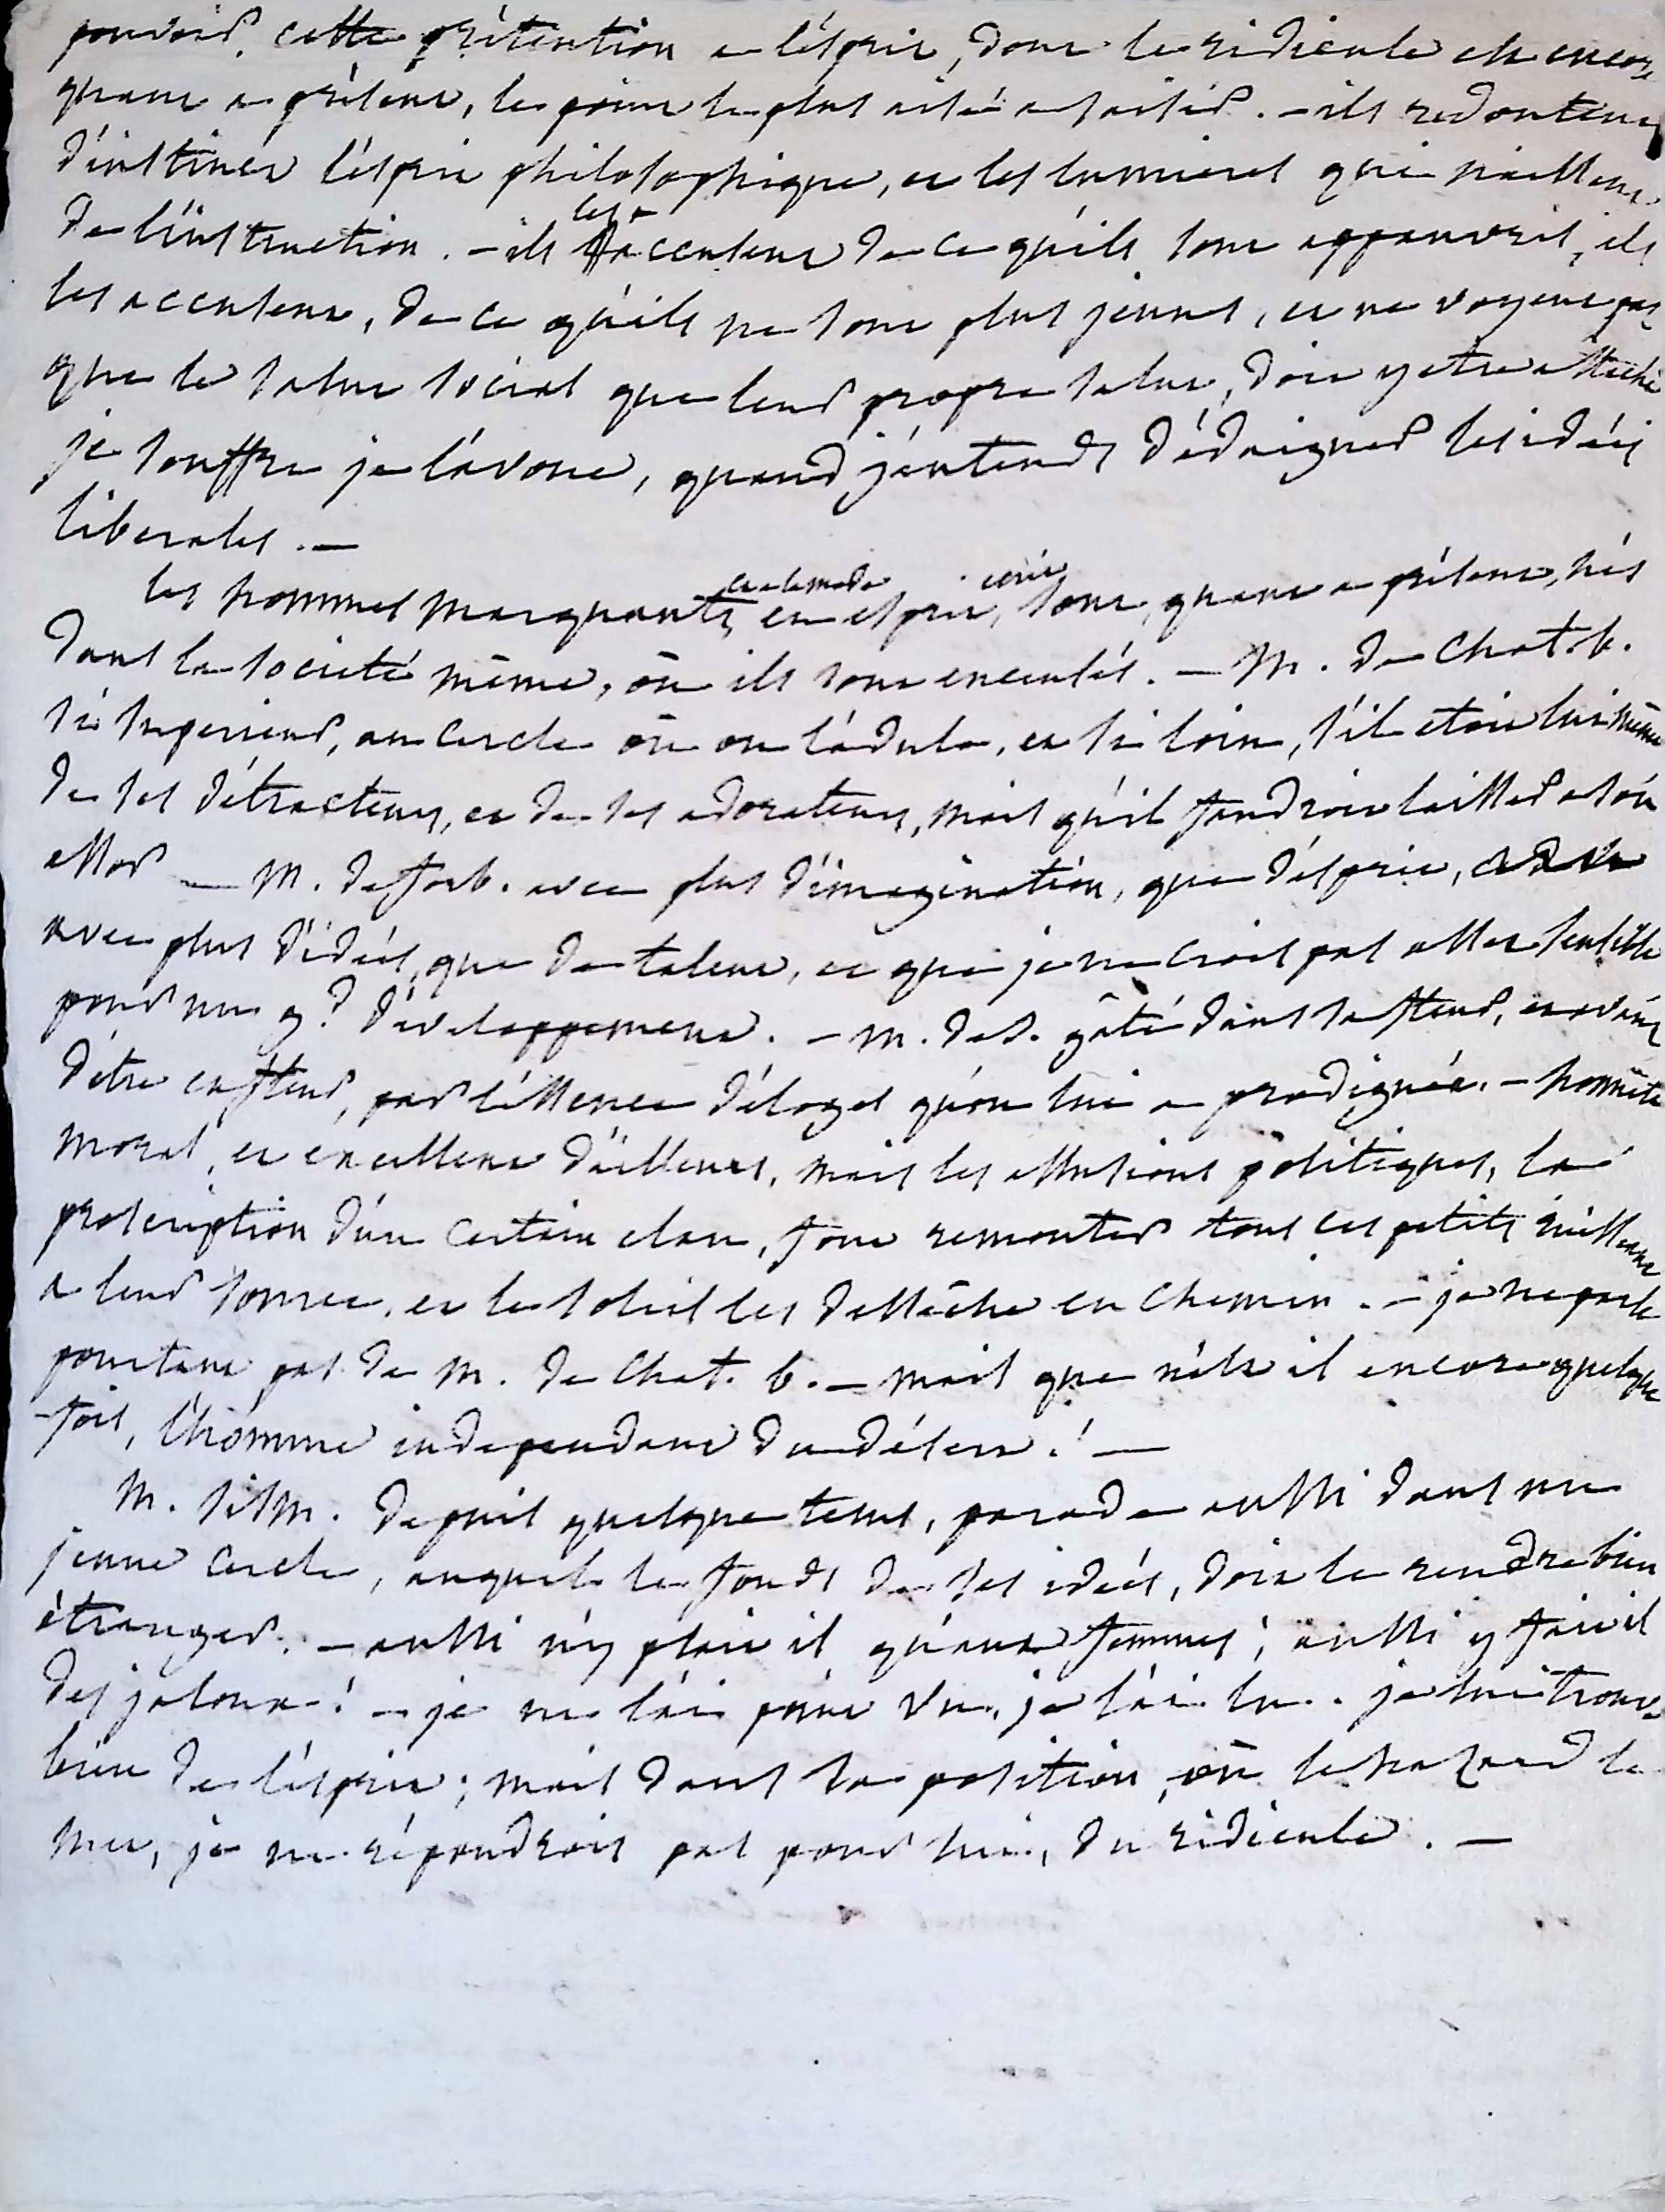 pouvoir, cette prétention a l'esprit, dont le ridicule est encore
quant a présent, le point le plus aisé a saisir. - ils redoutent
d'instinct l'esprit philosophique, et les lumieres qui naissent
de l'instruction. - ils les accusent de ce qu'ils sont appauvris, ils
les accusent, de ce qu'ils ne sont plus jeunes, et ne voyent pas
que le salut social que leur propre salut, doit y etre attaché
je souffre je l'avoue, quand j'entends dédaigner les idées
liberales. -
les hommes marquants, et a la mode en esprit, sont, quant a présent, nés
dans la societé même, où ils sont encensés. - M. de Chat. b.
si superieur, au cercle où on l'adule, et si loin, s'il etoit lui même
de ses détracteurs, et de ses adorateurs, mais qu'il faudroit laisser a son
essor - M. de forb. avec plus d'imagination, que d'esprit,
avec plus d'idées, que de talent, et que je ne crois pas assez sensible
pour un gd développement. - M. de S. gâté dans sa fleur, et avant
d'être en fleur, par l'essence d'éloges qu'on lui a prodiguée. - homme
moral, et excellent d'ailleurs, mais les allusions politiques, la
proscription d'un certain elan, font remonter tous ces petits ruisseaux
a leur source, et le soleil les dessèche en chemin. - je ne parle
pourtant pas de M. de Chat. b. - mais que n'est il encore quelque
-fois, l'homme independant du désert! -
M. Sism. depuis quelque tems, parade aussi dans un
jeune cercle, auquel le fonds de ses idées, doit le rendre bien
étranger. - aussi n'y plait il qu'aux femmes; aussi y fait il
des jaloux! - je ne l'ai point vu, je l'ai lu. je lui trouve
bien de l'esprit; mais dans la position, où le hazard le
met, je ne répondrois pas pour lui, du ridicule. -